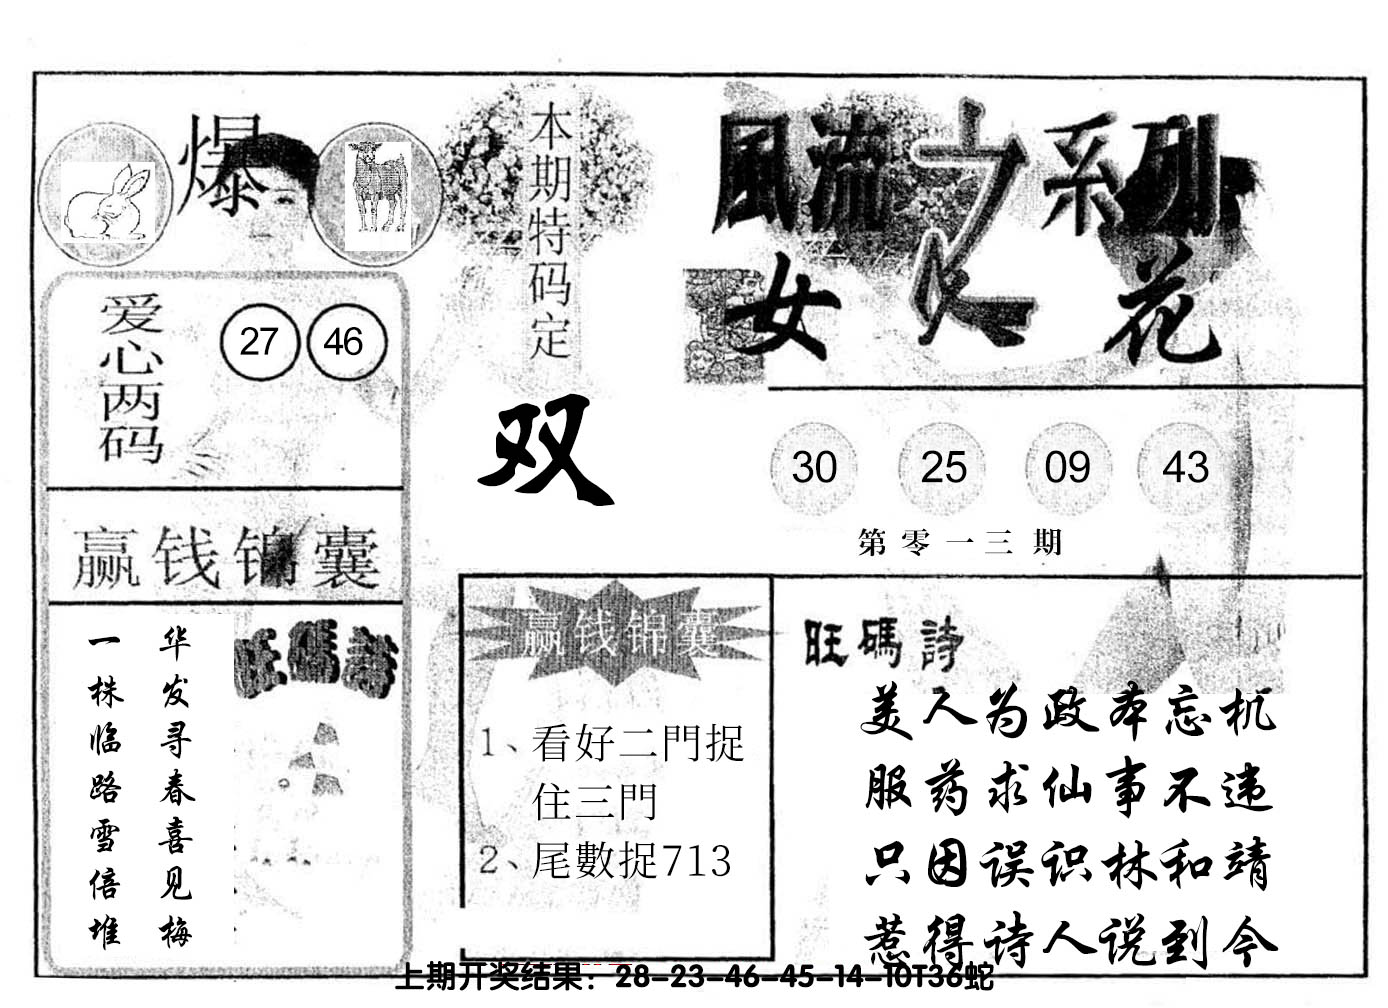 爆
爱心两码
27 46
赢钱锦囊
华发寻春喜见梅
一株临路雪倍堆
旺碼詩
本期特码定
双
風流之系列
女人花
30 25 09 43
第零一三期
赢钱锦囊
1、看好二門捉
住三門
2、尾數捉713
旺碼詩
美人为政本忘机
服药求仙事不违
只因误识林和靖
惹得诗人说到今
上期开奖结果：28-23-46-45-14-10T36蛇